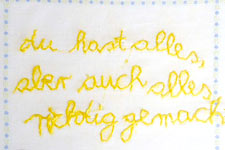 du hast alles,
aber auch alles
richtig gemach